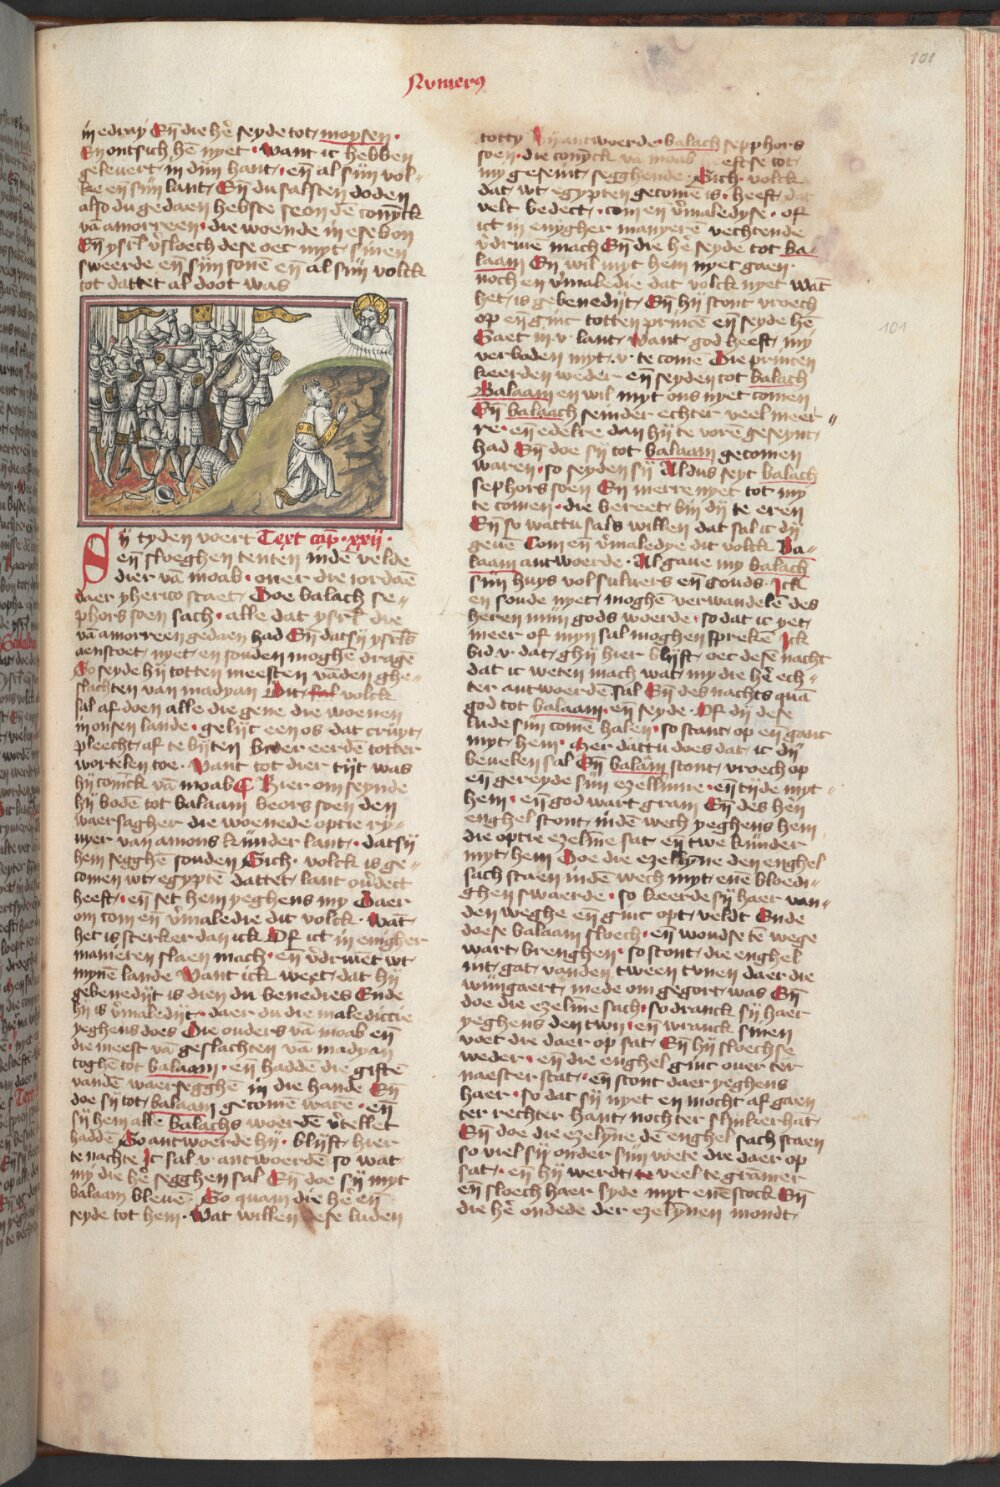 Numerus
101
in edray En̄ die hē seyde tot moysen ·
En ontsich hē nyet · Want ic hebben
gelevert in dijn hant · en̄ al sijn vol-
ke en sijn lant · En̄ du salsten doden
also du gedaen hebste seon dē conyck
vā amorreen · die woende in esebon
En̄ ysrl̄ v̄sloech dese oec myt sinen
sweerde en̄ sijn sonē en̄ al sijn volck
tot dattet al doot was
Sy tyden voert Text cap̄ · xxij ·
en̄ sloeghen tenten indē velde
dier vā moab · over die iordaē
daer yherico staet · Doe balach se-
phors soen sach · alle dat ysrl̄ die
vā amorreen gedaen had En̄ datsy ysrls
aenstoet nyet en souden moghē dragē
So seyde hij totten meesten vāden ghe-
slachten van madyan Dit volck
sal af doen alle die gene die woenen
in onsen lande · gelijc een os dat cruyt
pleecht af te bijten bider eerdē totter
wortelen toe · Want tot dier tijt was
hij conick vā moab Hier om seynde
hij bodē tot balaam beors soen den
waersagher die woenede optie ry-
vyer van amons kijnder lant · datsij
hem segghē souden Sich · volck is ge-
comen wt egyptē dattet lant ov̄dect
heeft · en̄ set hem yeghens my Daer
om com en̄ v̄maledie dit volck · Wāt
het is sterker dan ick Of ict in enigher
manieren slaen mach · en̄ v̄driuet wt
mynē lande Want ick weet dat hij
gebenedijt is dien du benedies Ende
hij is v̄maledijt · daer du die maledictie
yeghens does Die ouders vā moab en̄
die meest vā geslachten vā madyan
toghē tot balaam · en̄ hadden die giftē
vandē waersegghē in die handē En̄
doe sij tot balaam gecomē warē · en̄
sij hem alle balachs woerdē v̄tellet
haddē So antwoerde hij · blijft hier
te nachte Ic sal v antwoerdē so wat
my die hē segghen sal En̄ doe sij myt
balaam bleuē · So quam die hē en̄
seyde tot hem · Wat willen dese luden
tot ty antwoerde · balach sepphors
soen · die conyck vā moab heeftse tot
my gesent segghende · Sich · volck
dat wt egypten gecomē is · heeft dat
velt bedect · com en v̄maledyse · of
ict in enygher manyerē vechtende
v̄driuē mach En̄ die hē seyde tot ba-
laam En̄ wil myt hem nyet gaen ·
noch en v̄maledie dat volck nyet Wāt
het is gebenedijt · En̄ hij stont vroech
op en̄ ginc totten princē en̄ seyde hē
Gaet in v lant Want god heeft my
verboden myt v te comē Die princen
keerden weder en̄ seyden tot balach
Balaam en wil myt ons nyet comen
En̄ balaach seinder echter veel meer
re · en̄ edelre dan hij te vorē geseynt
had En̄ doe sij tot balaam gecomen
waren · so seyden sij Aldus seyt balach
sephors soen En merre nyet tot my
te comen · die bereet bin dij te eren
En̄ so wattu sals willen dat sal ic dij
geuē Com en̄ v̄maledye dit volck Ba-
laam antwoerde · Al gaue my balach
sijn huys vol siluers en̄ gouds · Ick
en soude nyet moghē verwandelē des
heren mijn gods woerde · so dat ic yet
meer of myn sal moghen sprekē Ick
bid v · dat ghij hier blijft · oec desē nacht
dat ic weten mach wat my die hē ech-
ter antwoerdē sal En̄ des nachts quā
god tot balaam · en̄ seyde · Of dij dese
lude sijn comē halen · so stant op en̄ ganc
myt hem · Mer dattu does dat ic dij
beuelen sal En̄ balaam stont vroech op
en̄ gereyde sijn ezellinne · en̄ tijde myt
hem · en̄ god wart gram En̄ des hen̄
enghel stont indē wech yeghens hem
die optie ezelinē sat · en̄ twe kijnder
myt hem Doe die ezellynē den enghel
sach staen indē wech myt enē bloedi-
ghen swaerde · so keerde sij haer van-
den weghe en̄ ginc opt veldt Ende
doese balaam sloech · en̄ woudse tē wege
wart brenghen · so stont die enghel
int gat vanden tween tvnen daer die
wijngaert mede om gegort was En̄
doe die ezelinē sach · so dranck sij haer
yeghens den twn · en̄ wranck sinen
voet die daer op sat · En̄ hij sloechse
weder · en̄ die enghel ginc over ter
naester stat · en̄ stont daer yeghens
haer · so dat sij nyet en mocht af gaen
ter rechter hant · noch ter slinkerhāt
En̄ doe die ezelyne dē enghel sach staen
so viel sij onder sijn voete die daer op
sat · en̄ hij werdt te veel te gramer
en̄ sloech haer syde myt enē stock En̄
die hē ondede der ezelynen mondt
101